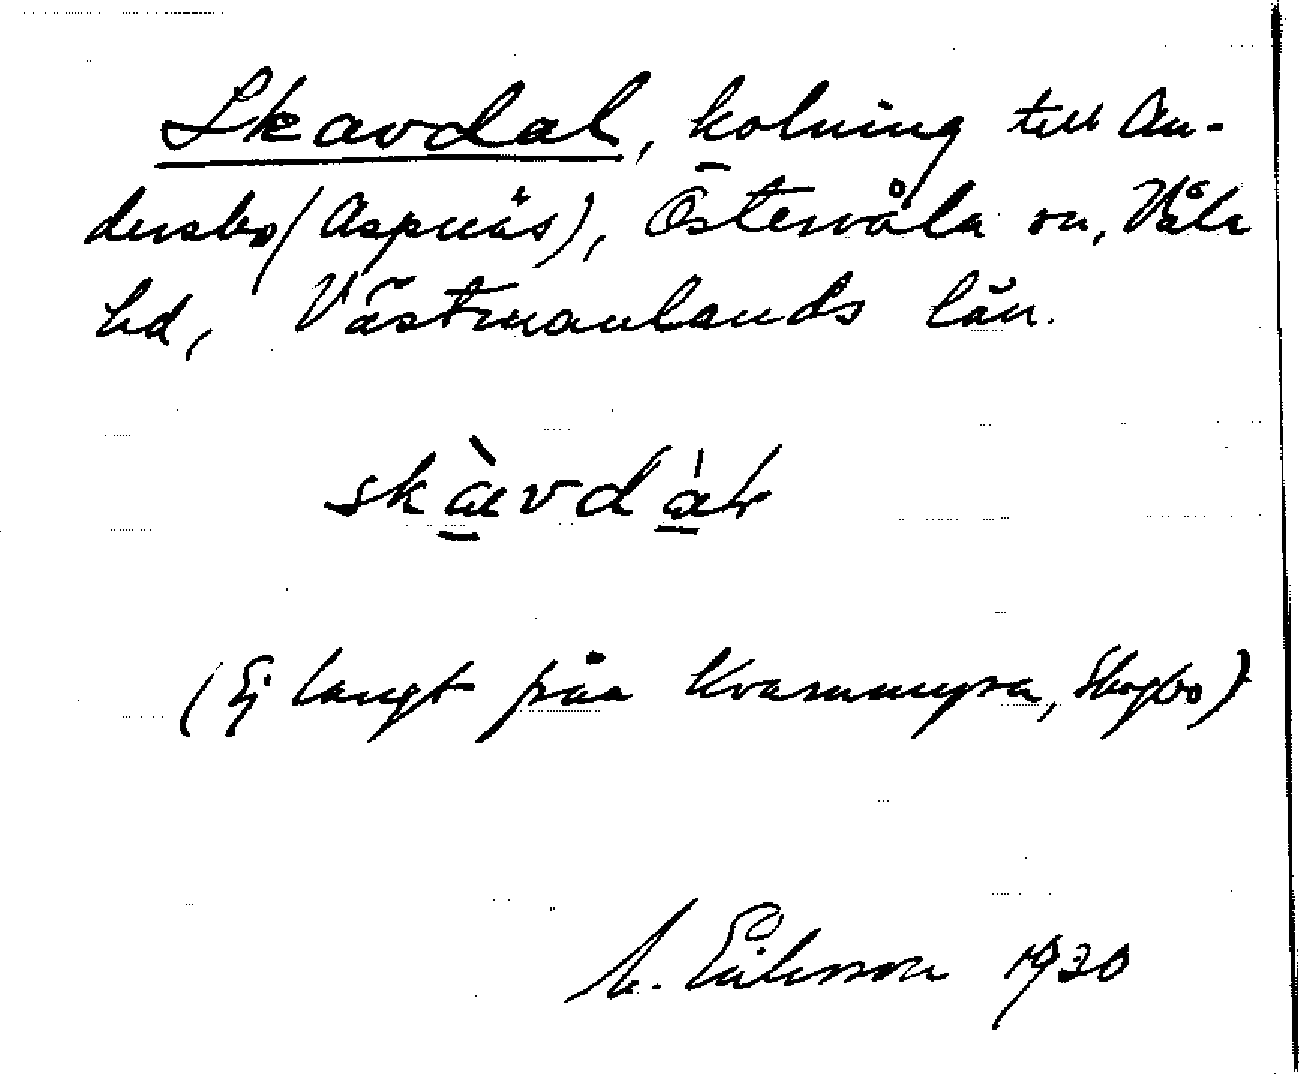 Skavdal, kolning till An-
dersbo (Aspnäs), Östervåla sn, Våla
hd, Västmanlands län.
skàvdá̱ƚ
(Ej långt från Kvarnmyra, Skogbo)
M. Eriksson 1930